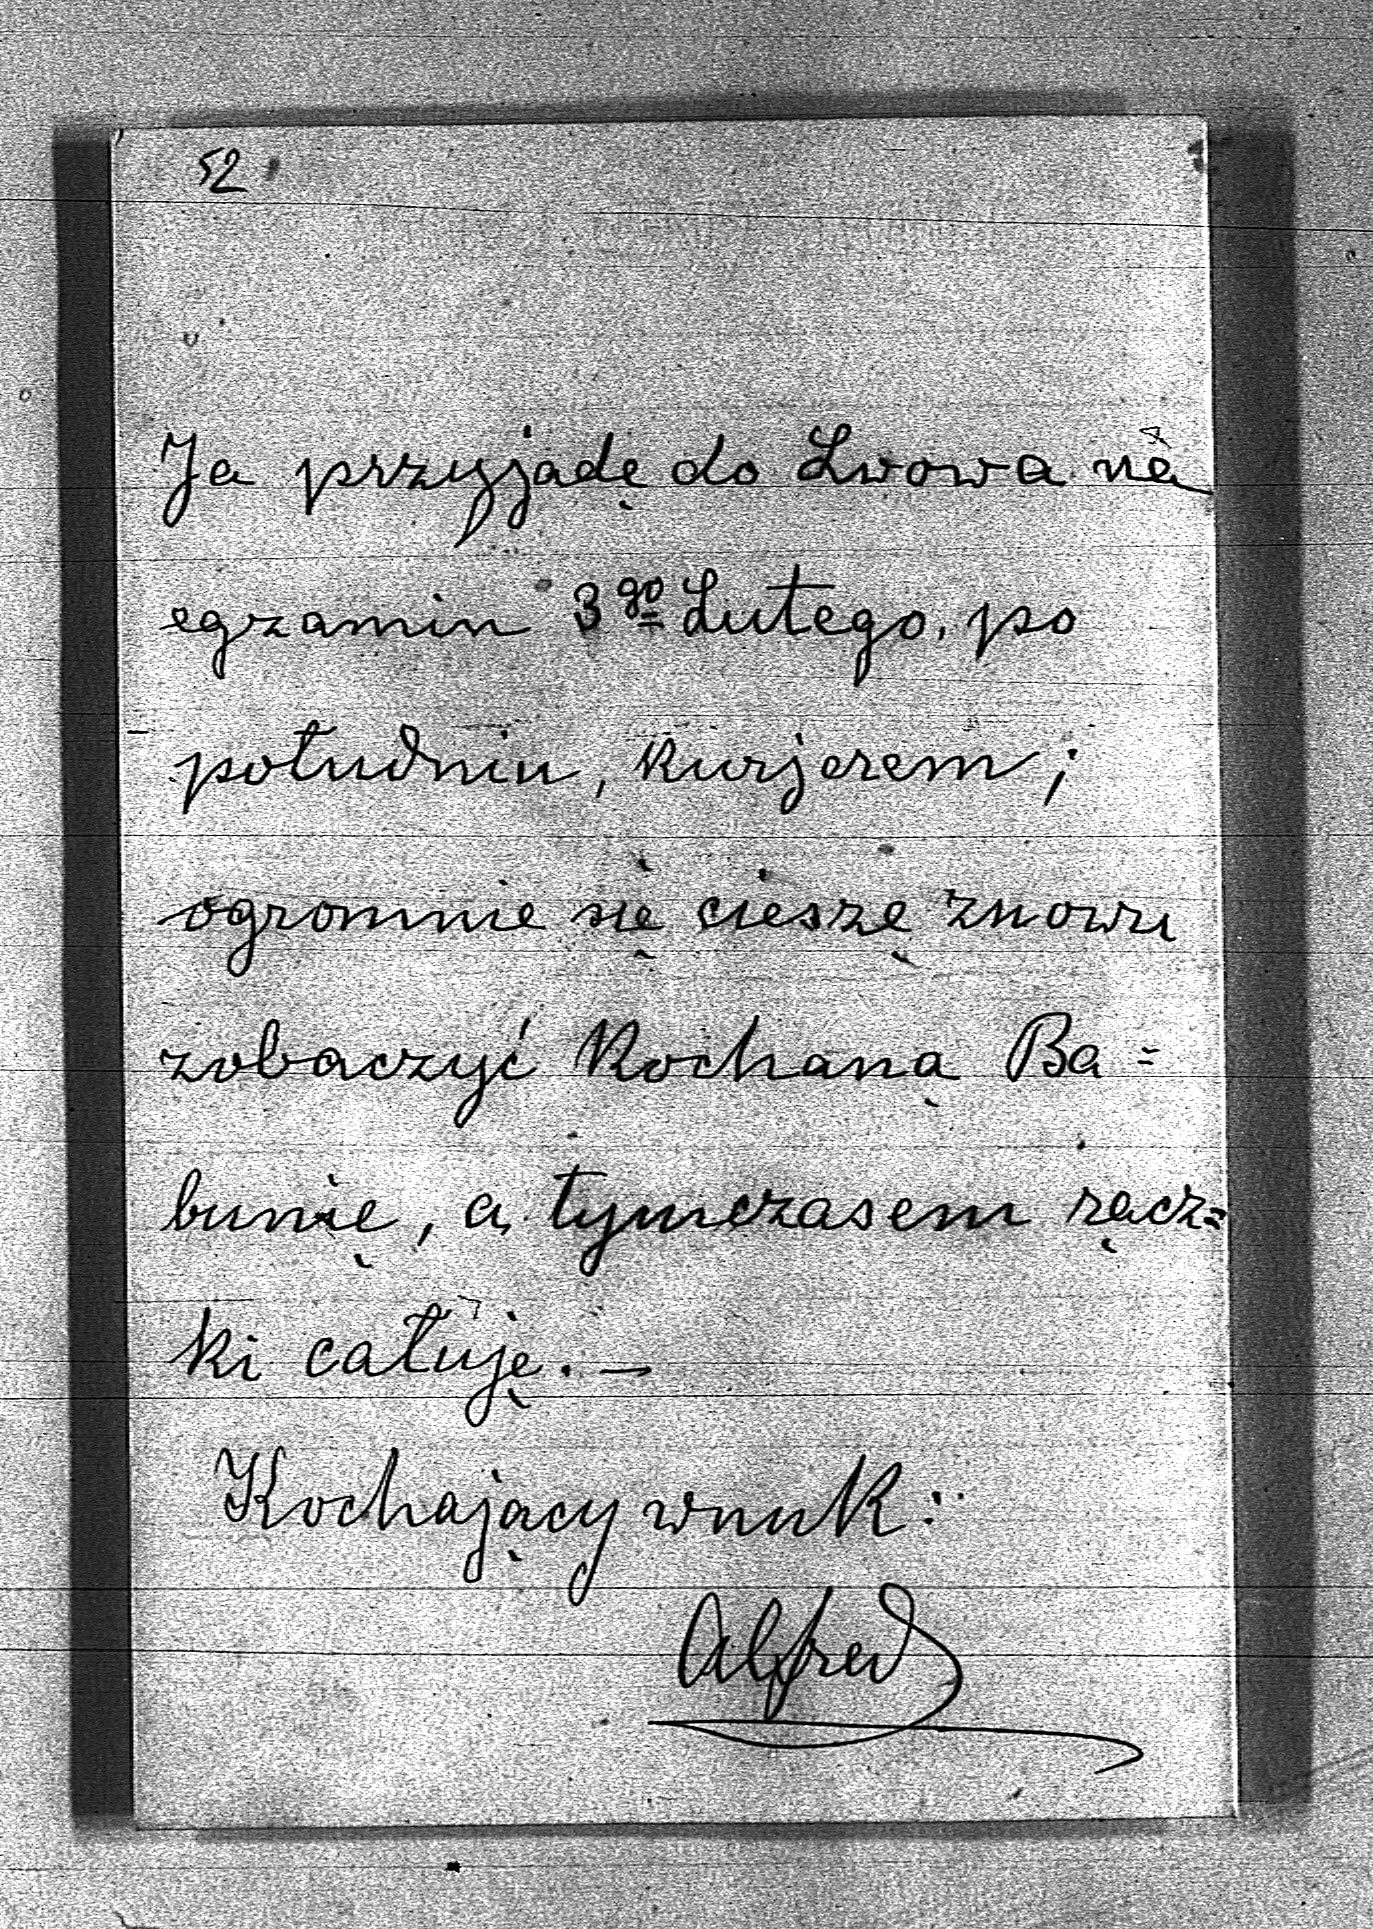 52
Ja przyjadę do Lwowa na
egzamin 3go Lutego, po
południu, kurjerem;
ogromnie się cieszę znowu
zobaczyć Kochaną Ba=
bunię, a tymczasem rącz=
ki całuję. —
Kochający wnuk:
Alfred